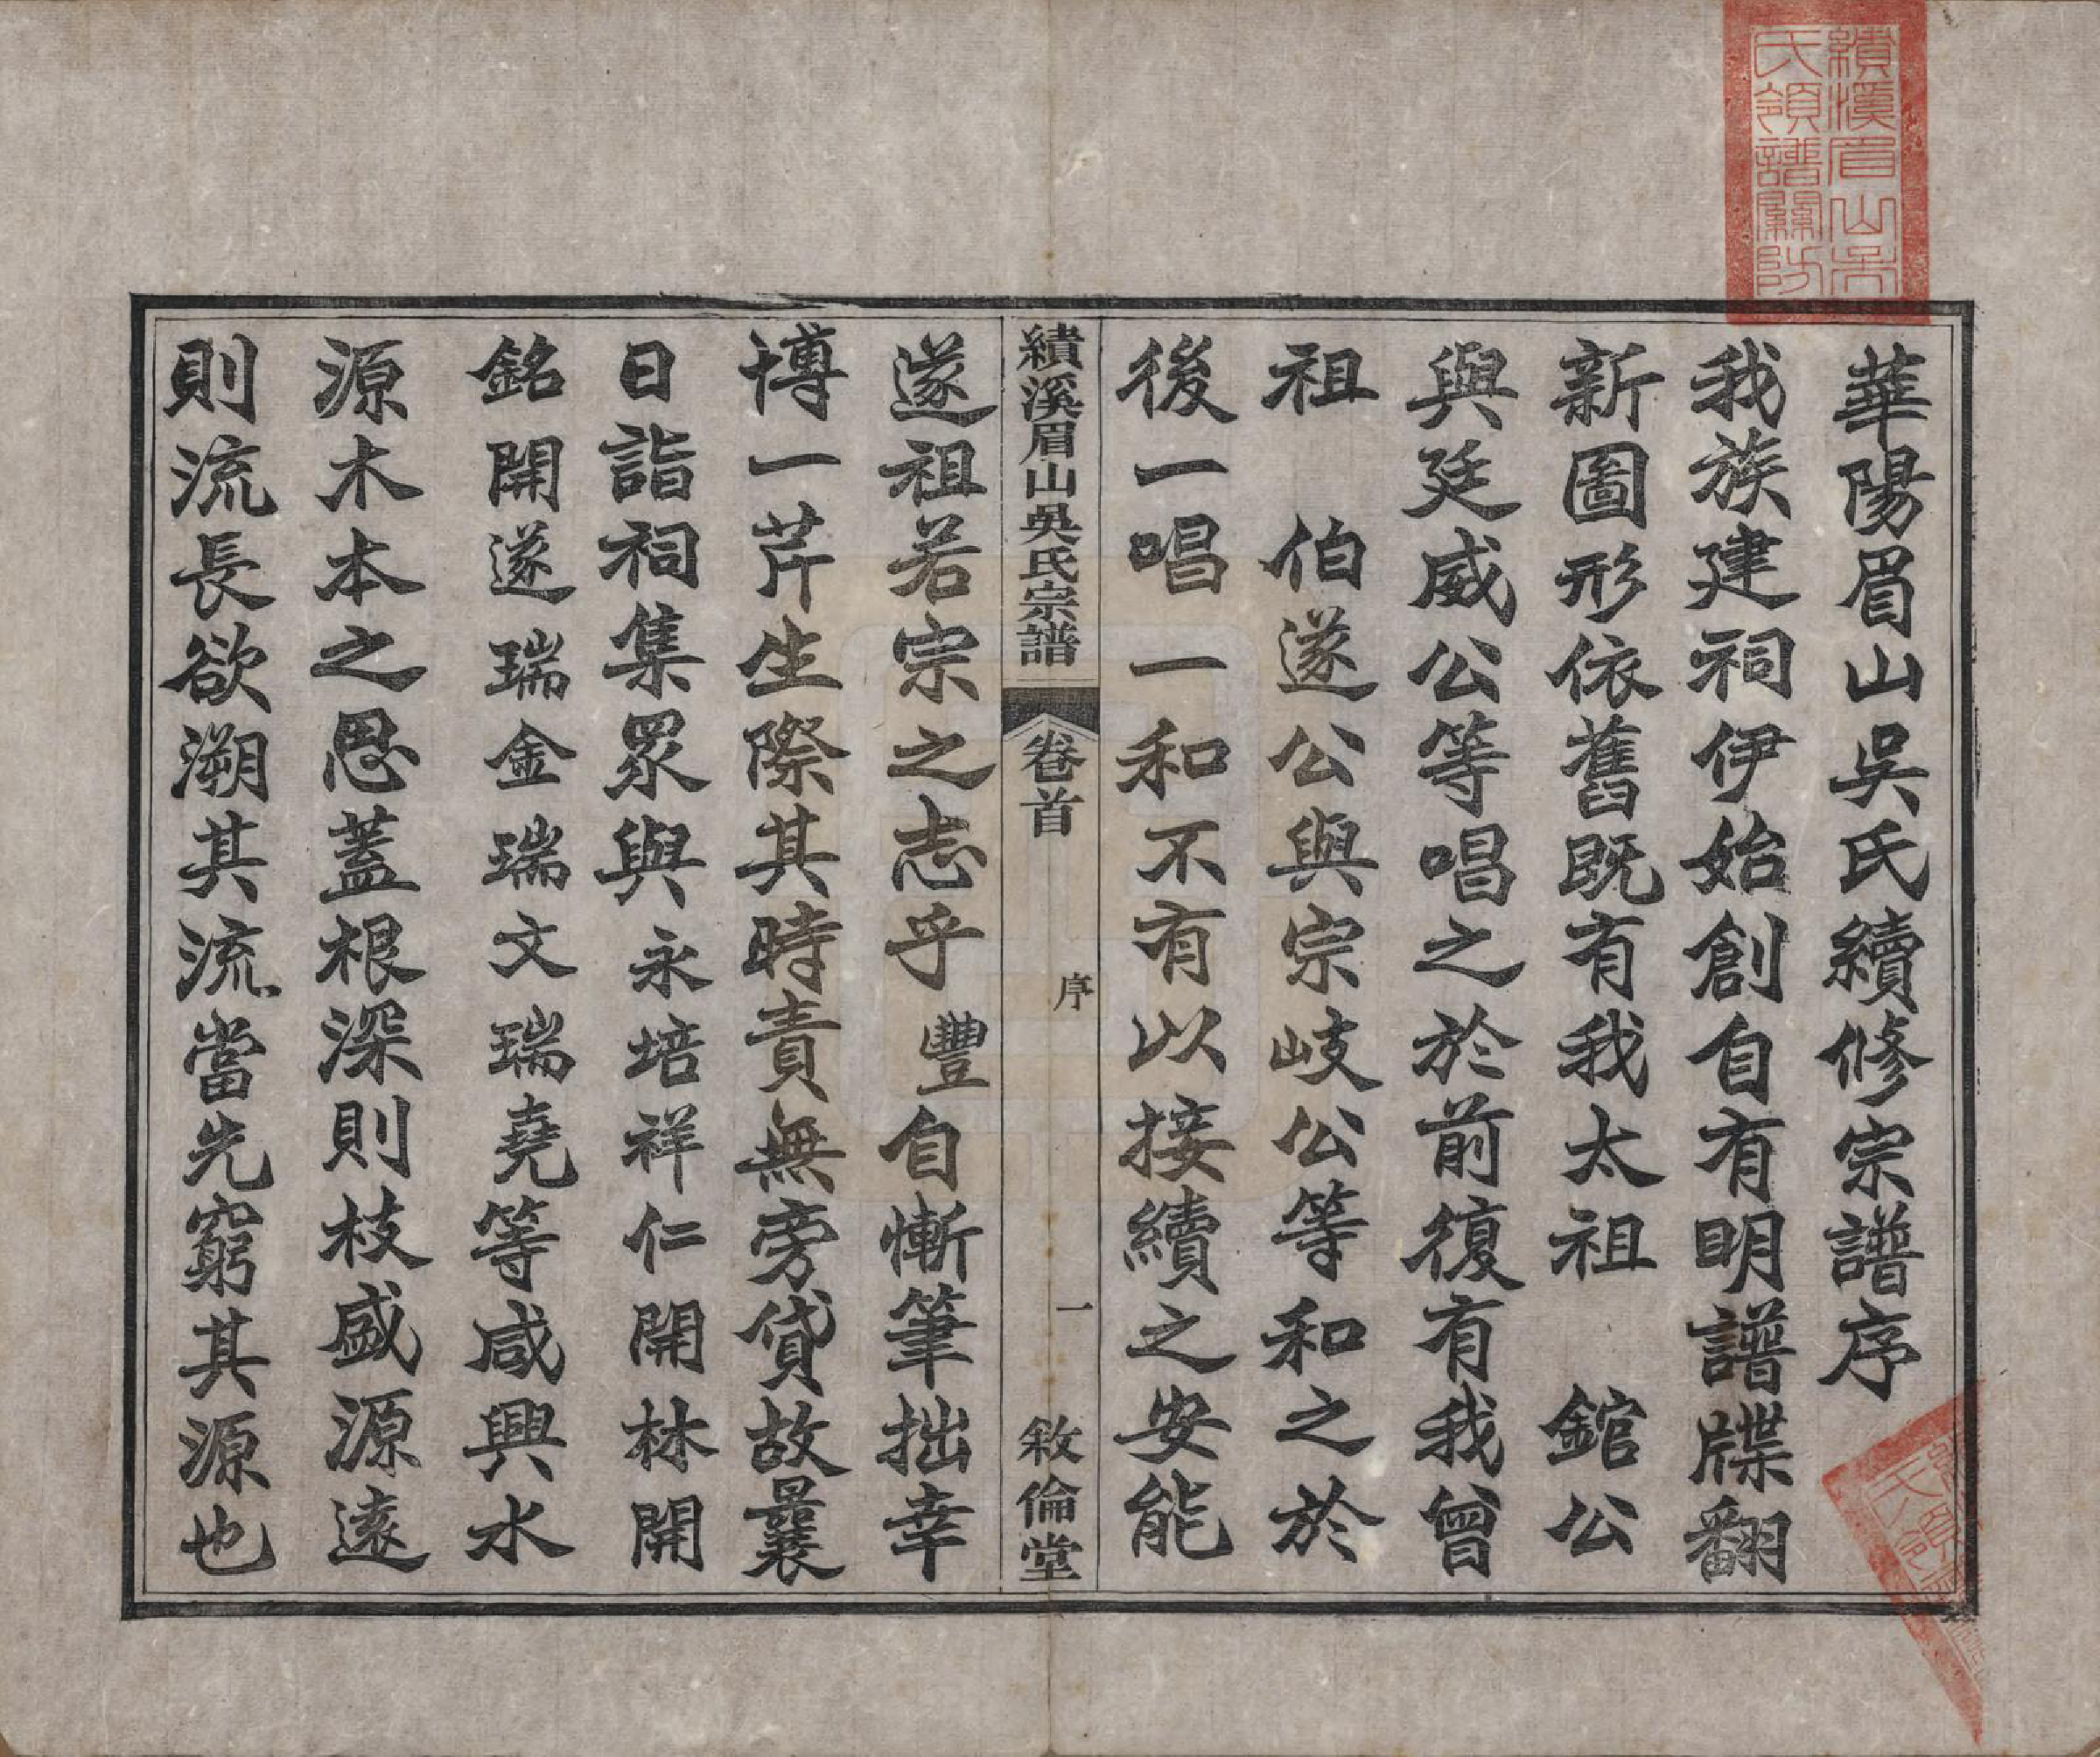 華陽眉山吳氏續修宗譜序
我族建祠伊始創自有明譜牒翻
新圖形依舊既有我太祖　錧公
與廷威公等唱之於前復有我曾
祖　伯遂公與宗岐公等和之於
後一唱一和不有以接續之安能
績溪眉山吳氏宗譜
卷首
序
一
敘倫堂
遂祖若宗之志乎豐自慚筆拙幸
博一芹生際其時責無旁貸故曩
日詣祠集眾與永培祥仁開林開
銘開遂瑞金瑞文瑞堯等咸興水
源木本之思蓋根深則枝盛源遠
則流長欲溯其流當先窮其源也
績溪眉山吳
氏領譜關防